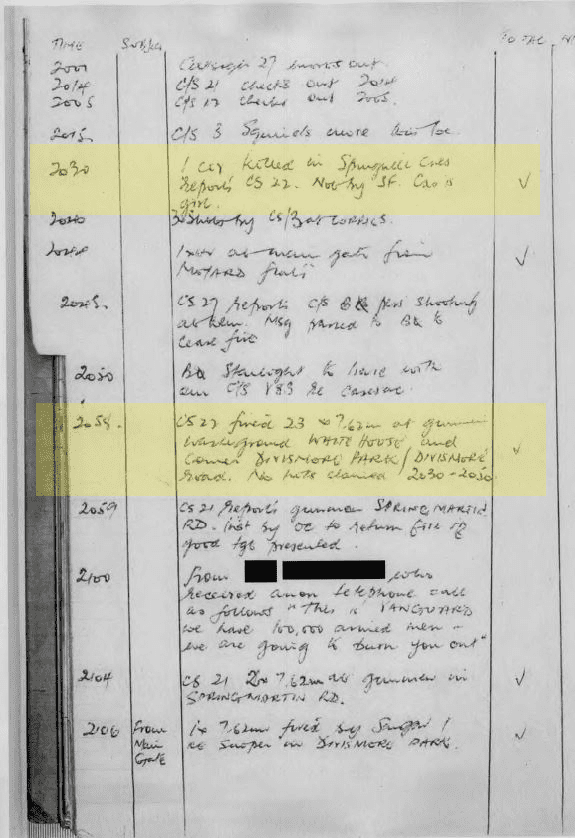 TIME Subject TO TAC
2000 Callsign 27 moves out.
2014 C/S 21 checks out 2014
2005 C/S 12 checks out 2005.
2015. C/S 3 Squirids more
2030 1 civ killed in Springhill Cres
Reports CS 22. Not by SF. Cas is
girl.
3 Shots by CS/3 at CORRIES.
at main gate from
MOYARD flats
2045. CS 27 Reports C/S pers shooting
at them. Msg passed to to
cease fire
2050 Starlight to liaise with
our C/S re casevac.
2058. CS 22 fired 23 x 7.62m at gunmen
WHITE HOUSE and
Corner DIVISMORE PARK / DIVISMORE
Road. No hits claimed 2030-2050.
2059 CS 21 Reports gunmen SPRINGMARTIN
RD. inst by OC to return fire if
good tgt presented.
2100 From who
received anon telephone call
as follows "This is VANGUARD
we have 100,000 armed men -
we are going to burn you out"
2104 CS 21 7.62mm at gunmen in
SPRINGMARTIN RD.
2106 From 1x 7.62mm fired by Sangar 1
Main at sniper in DIVISMORE PARK.
Gate